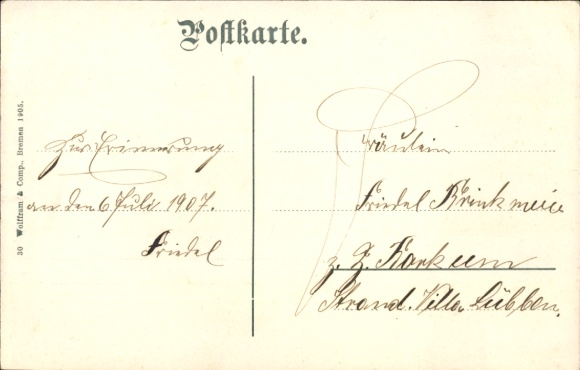 Postkarte.
30 Wolffram & Comp., Bremen 1905.
Zur Erinnerung
an den 6 Juli 1907.
Friedel
Fräulein
Friedel Brinkmeier
z. Z. Borkum
Strand. Villa Lübben.